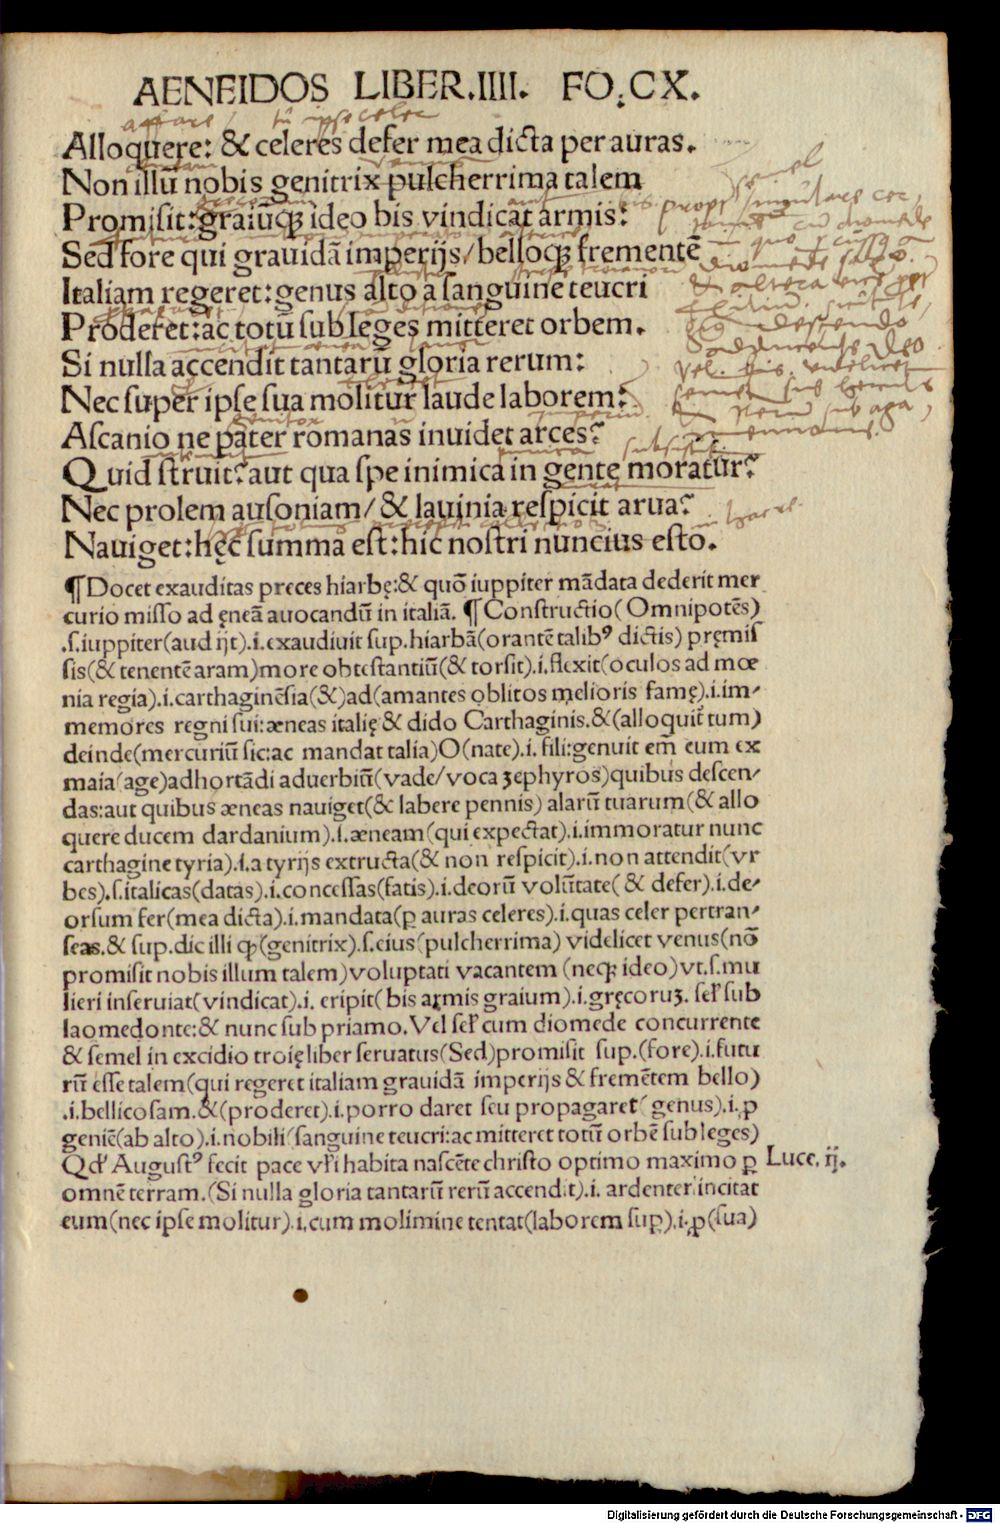 AENEIDOS LIBER.IIII. FO.CX.
Alloquere: & celeres defer mea dicta per auras.
Non illū nobis genitrix pulcherrima talem
Promisit: graiūqꝫ ideo bis vindicat armis:
Sed fore qui grauidā imperijs/ belloqꝫ frementē
Italiam regeret: genus alto a sanguine teucri
Proderet: ac totū sub leges mitteret orbem.
Si nulla accendit tantarū gloria rerum:
Nec super ipse sua molitur laude laborem:
Ascanio ne pater romanas inuidet arces?
Quid struit? aut qua spe inimica in gente moratur?
Nec prolem ausoniam/ & lauinia respicit arua?
Nauiget: hęc summa est: hic nostri nuncius esto.
¶Docet exauditas preces hiarbę: & quō iuppiter mādata dederit mer
curio misso ad ęneā auocandū in italiā. ¶Constructio(Omnipotēs)
.s.iuppiter(audijt).i.exaudiuit sup.hiarbā(orantē talibꝰ dictis) pręmis
sis(& tenentē aram)more obtestantiū(& torsit).i.flexit(oculos ad mœ
nia regia).i.carthaginēsia(&)ad(amantes oblitos melioris famę).i.im-
memores regni sui: æneas italię & dido Carthaginis.&(alloquit tum)
deinde(mercuriū sic: ac mandat talia)O(nate).i.fili: genuit em̄ eum ex
maia(age)adhortādi aduerbiū(vade/voca zephyros)quibus descen-
das: aut quibus æneas nauiget(& labere pennis) alarū tuarum(& allo
quere ducem dardanium).s.æneam(qui expectat).i.immoratur nunc
carthagine tyria).s.a tyrijs extructa(& non respicit).i.non attendit(vr
bes).s.italicas(datas).i.concessas(fatis).i.deorū volūtate(& defer).i.de-
orsum fer(mea dicta).i.mandata(ꝑ auras celeres).i.quas celer pertran-
seas.& sup.dic illi qꝫ(genitrix).s.eius(pulcherrima) videlicet venus(nō
promisit nobis illum talem)voluptati vacantem (neqꝫ ideo)vt.s.mu
lieri inseruiat(vindicat).i. eripit(bis armis graium).i.gręcoruꝫ. sel' sub
laomedonte: & nunc sub priamo. Vel sel' cum diomede concurrente
& semel in excidio troię liber seruatus(Sed)promisit sup.(fore).i.futu
rū esse talem(qui regeret italiam grauidā imperijs & fremētem bello)
.i.bellicosam.&(proderet).i.porro daret seu propagaret(genus).i.ꝓ
geniē(ab alto).i.nobili(sanguine teucri: ac mitteret totū orbē sub leges)
Qd' Augustꝰ fecit pace vr̄i habita nascēte christo optimo maximo ꝑ Luce.ij.
omnē terram.(Si nulla gloria tantarū rerū accendit).i. ardenter incitat
eum(nec ipse molitur).i.cum molimine tentat(laborem suꝑ).i.ꝓ(sua)
Digitalisierung gefördert durch die Deutsche Forschungsgemeinschaft - DFG